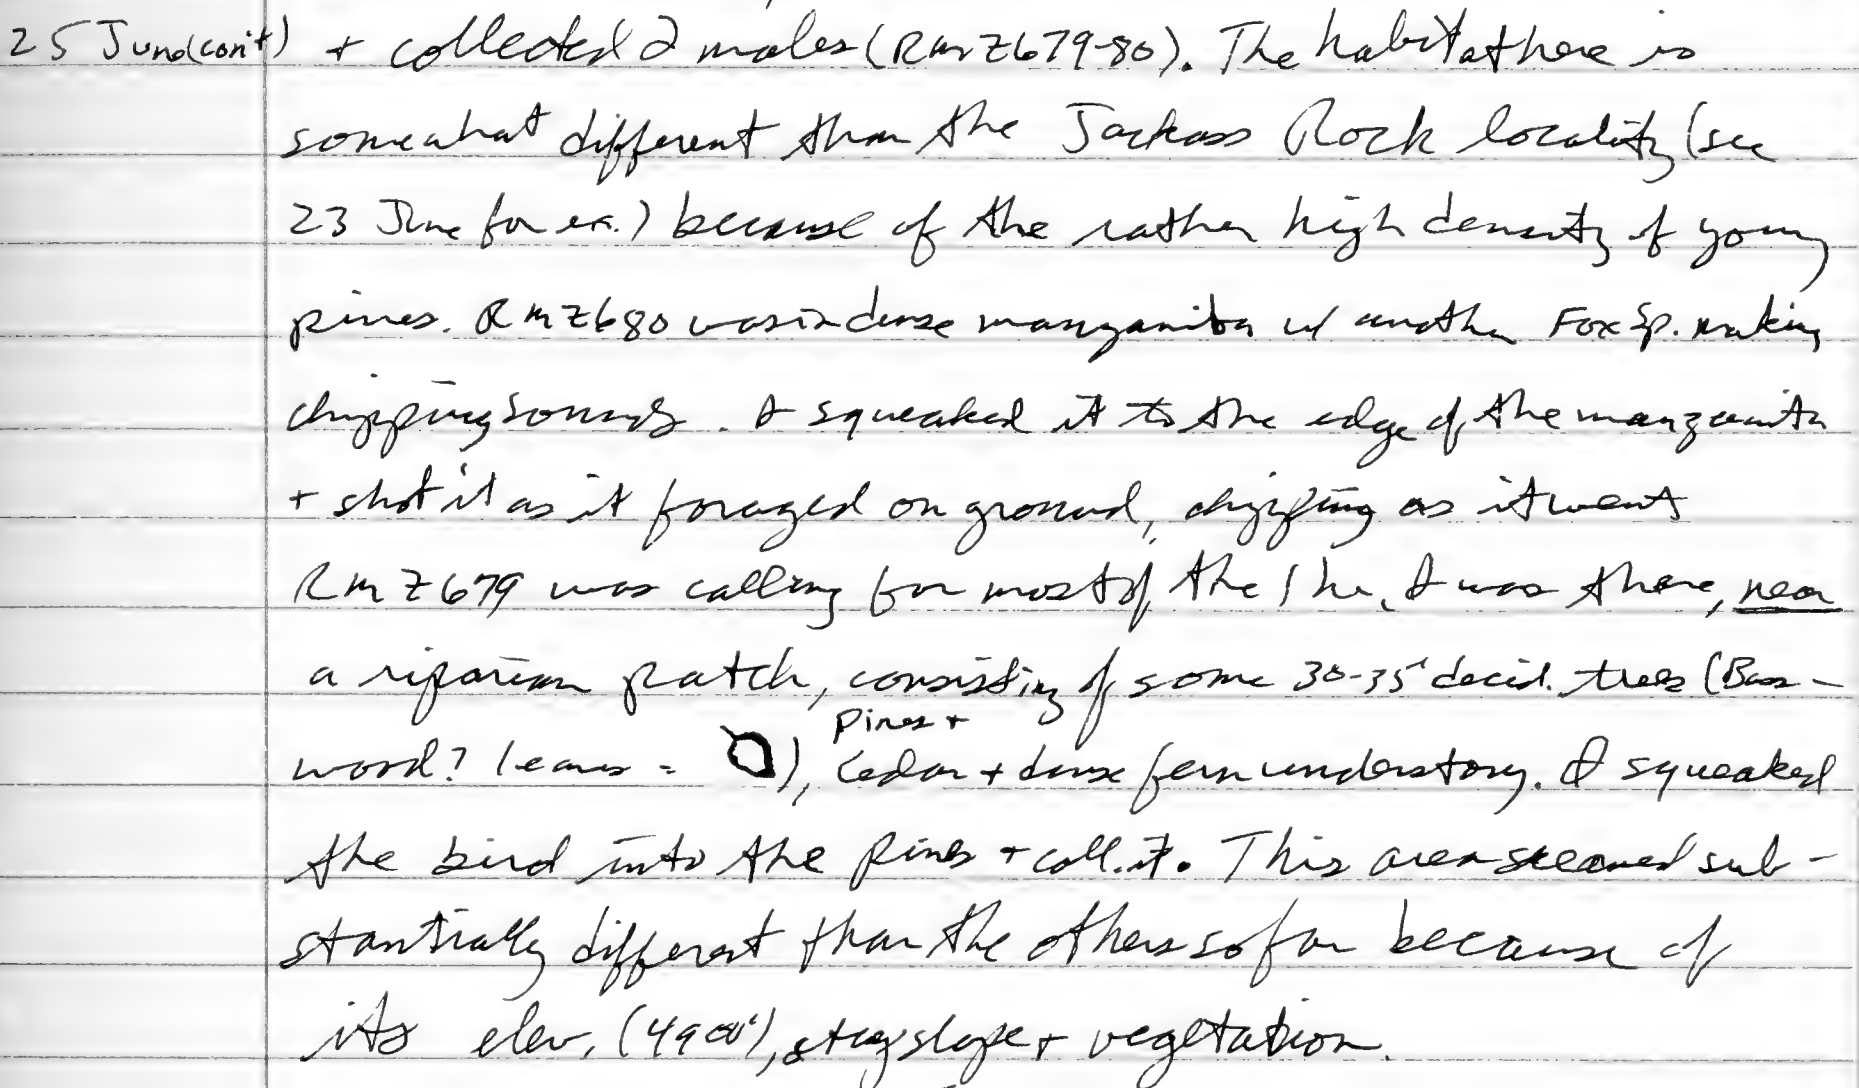 25 June (con't) + collected 2 males (RMZ679-80). The habitat here is
somewhat different than the Jackass Rock locality (see
23 June for ex.) because of the rather high density of young
pines. RMZ680 was in dense manzanita w/ another Fox Sp. making
chipping sounds. I squeaked it to the edge of the manzanita
+ shot it as it foraged on ground, chipping as it went
RMZ679 was calling for most of the 1 hr. I was there, near
a riparian patch, consisting of some 30-35' decid. trees (Bass-
pines +
wood? leaves = ), Cedar + dense fern understory. I squeaked
the bird into the pines + coll. it. This area seemed sub-
stantially different than the others so far because of
its elev. (4900'), steep slope + vegetation.